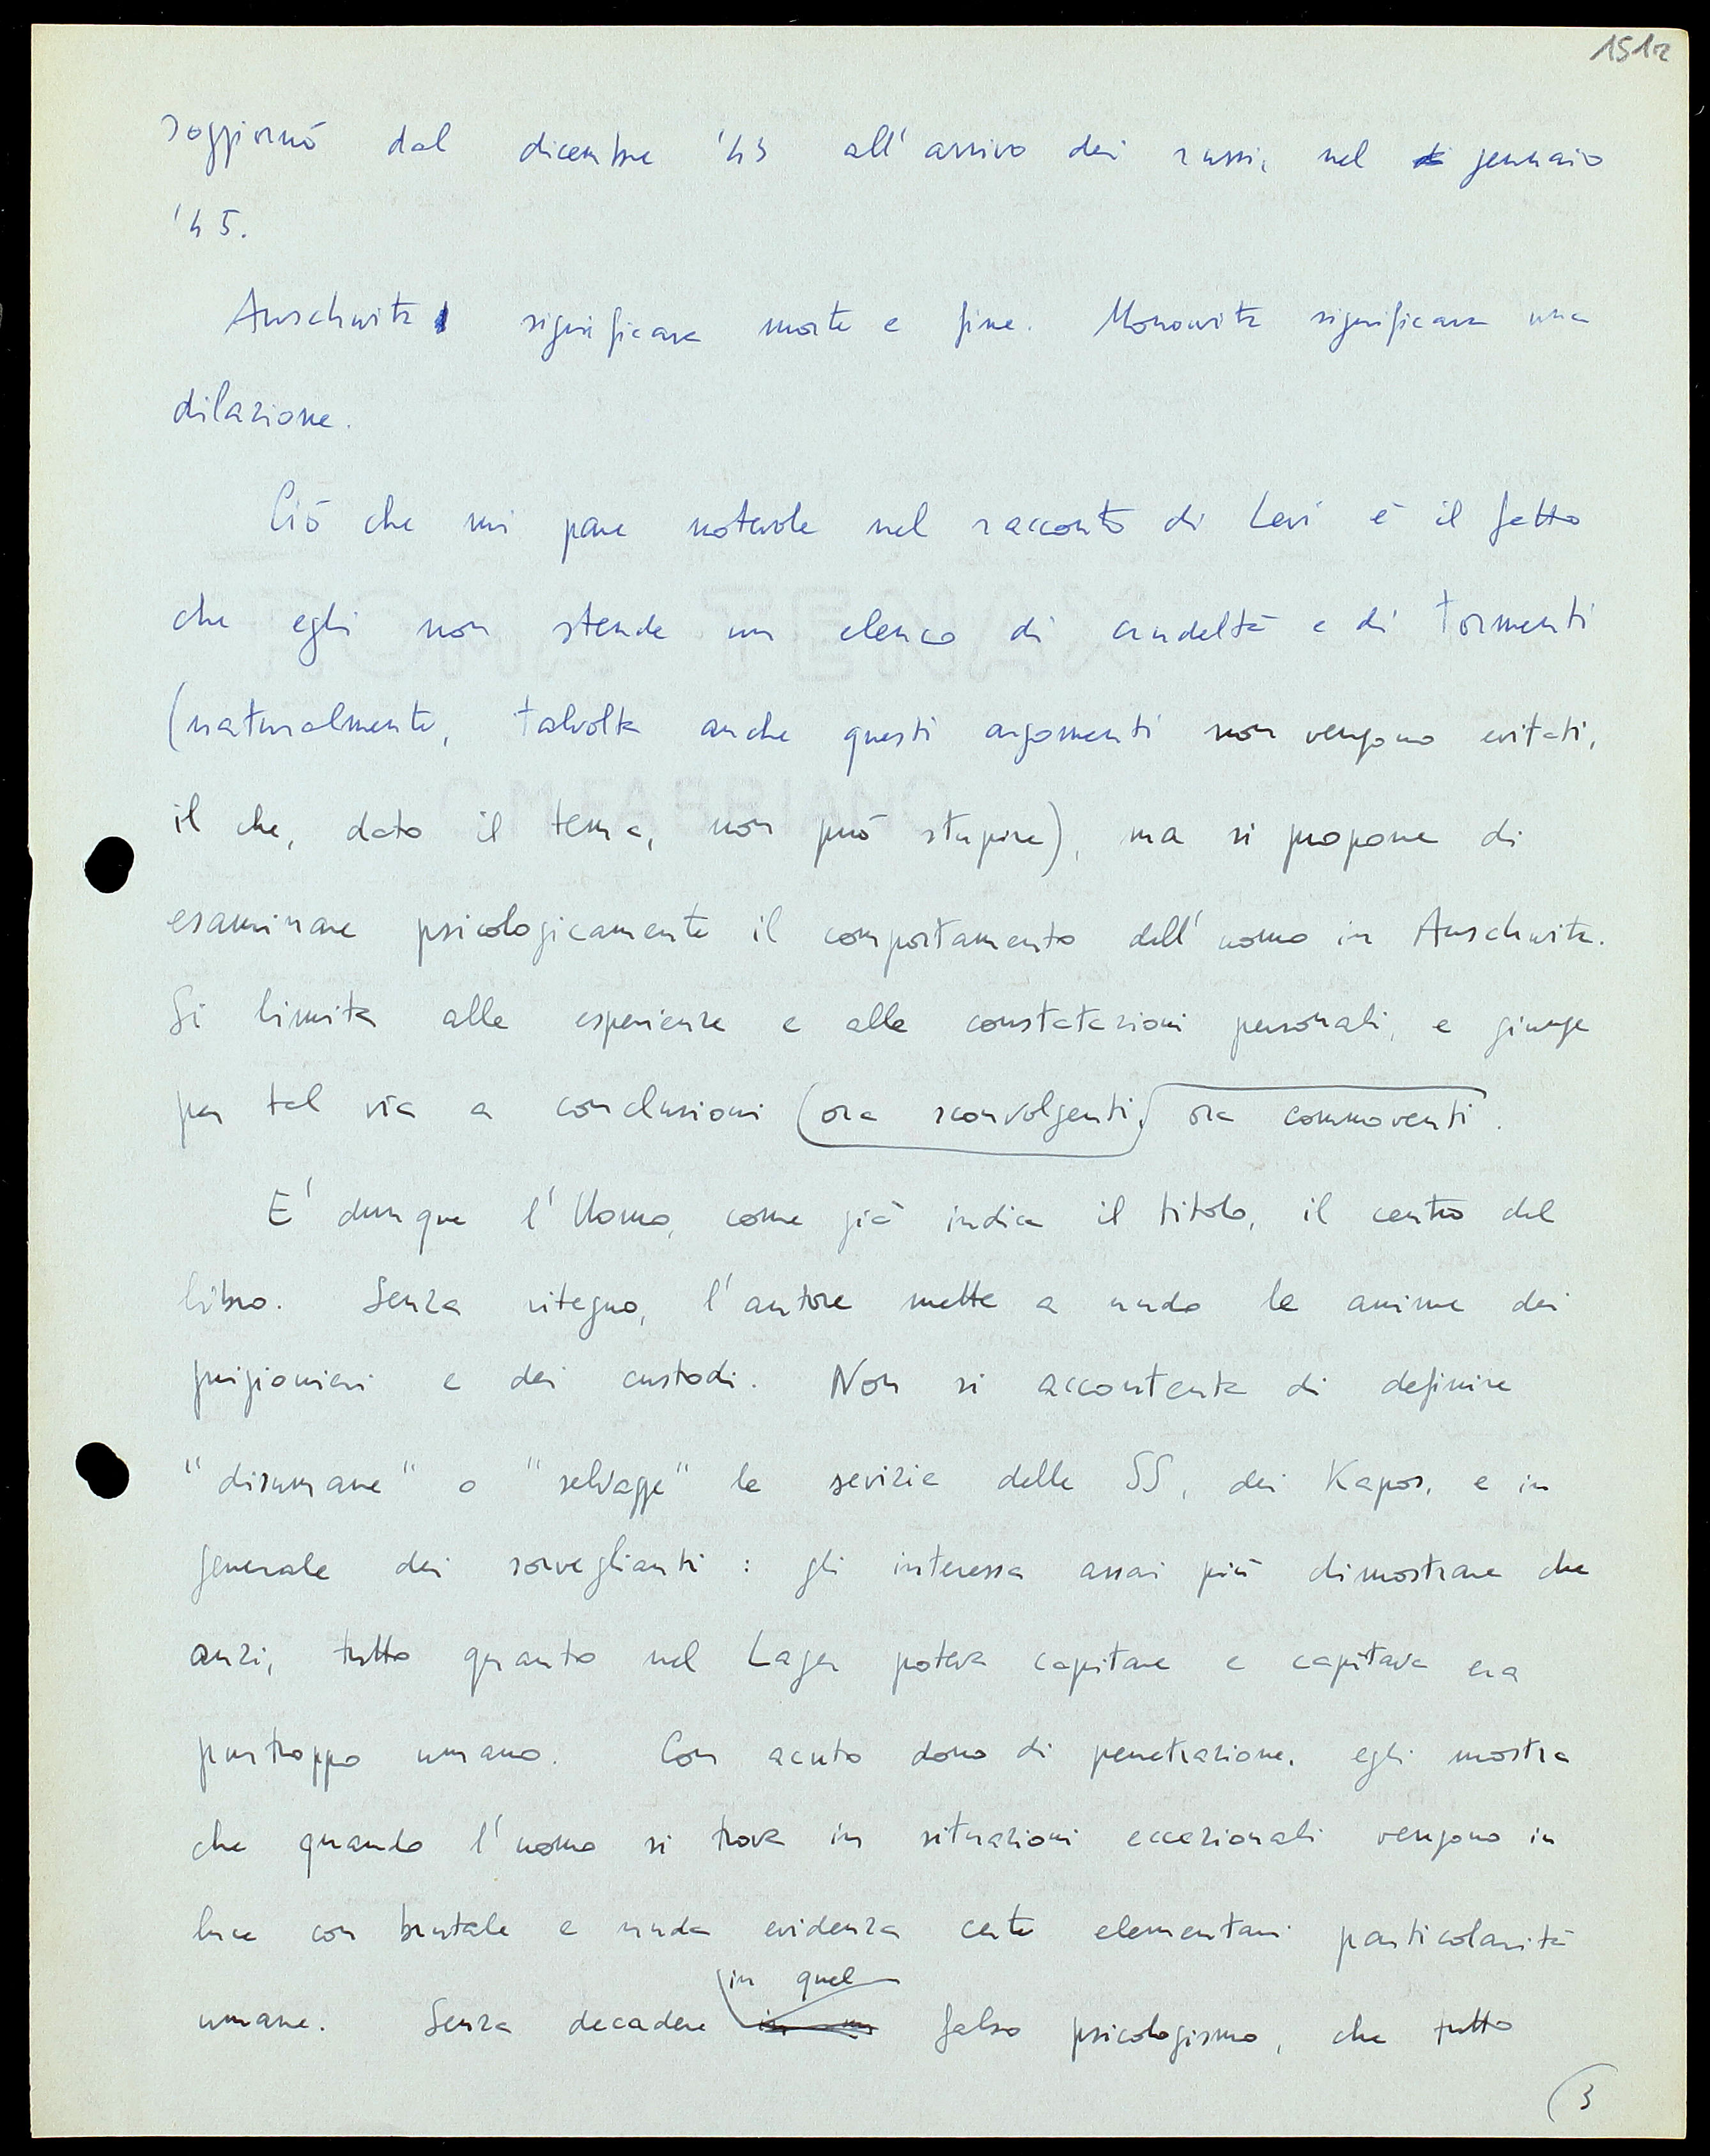 151r
soggiornò dal dicembre '43 all'arrivo dei russi, nel gennaio
'45.
Auschwitz significava morte e fine. Monowitz significava una
dilazione.
Ciò che mi pare notevole nel racconto di Levi è il fatto
che egli non stende un elenco di crudeltà e di tormenti
(naturalmente, talvolta anche questi argomenti non vengono evitati,
il che, dato il tema, non può stupire), ma si propone di
esaminare psicologicamente il comportamento dell'uomo in Auschwitz.
Si limita alle esperienze e alle constatazioni personali, e giunge
per tal via a conclusioni ora sconvolgenti, ora commoventi.
E' dunque l'Uomo, come già indica il titolo, il centro del
libro. Senza ritegno, l'autore mette a nudo le anime dei
prigionieri e dei custodi. Non si accontenta di definire
"disumane" o "selvagge" le sevizie delle SS, dei Kapos, e in
generale dei sorveglianti : gli interessa assai più dimostrare che
anzi, tutto quanto nel Lager poteva capitare e capitava era
purtroppo umano. Con acuto dono di penetrazione, egli mostra
che quando l'uomo si trova in situazioni eccezionali vengono in
luce con brutale e nuda evidenza certe elementari particolarità
in quel
umane. Senza decadere in un falso psicologismo, che tutto
3